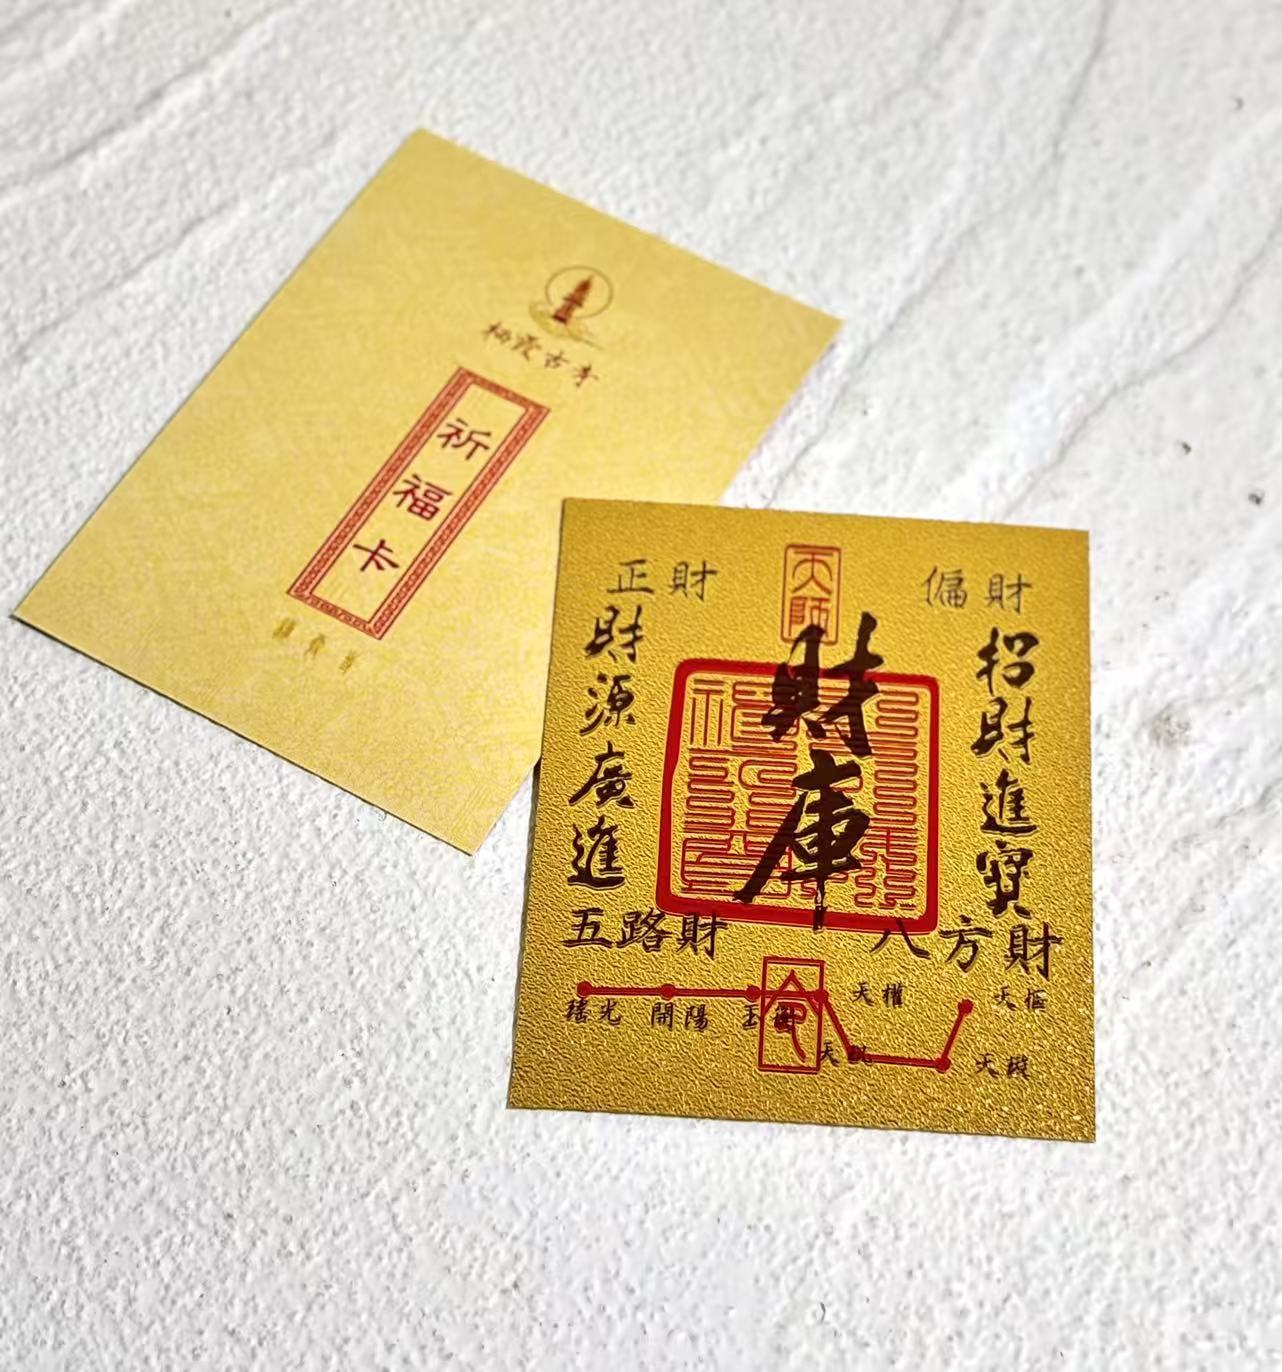 栖霞古寺
祈福卡
天師
正財
偏財
財庫
財源廣進
招財進寶
五路財
八方財
搖光
開陽
玉衡
天權
天樞
天璇
命